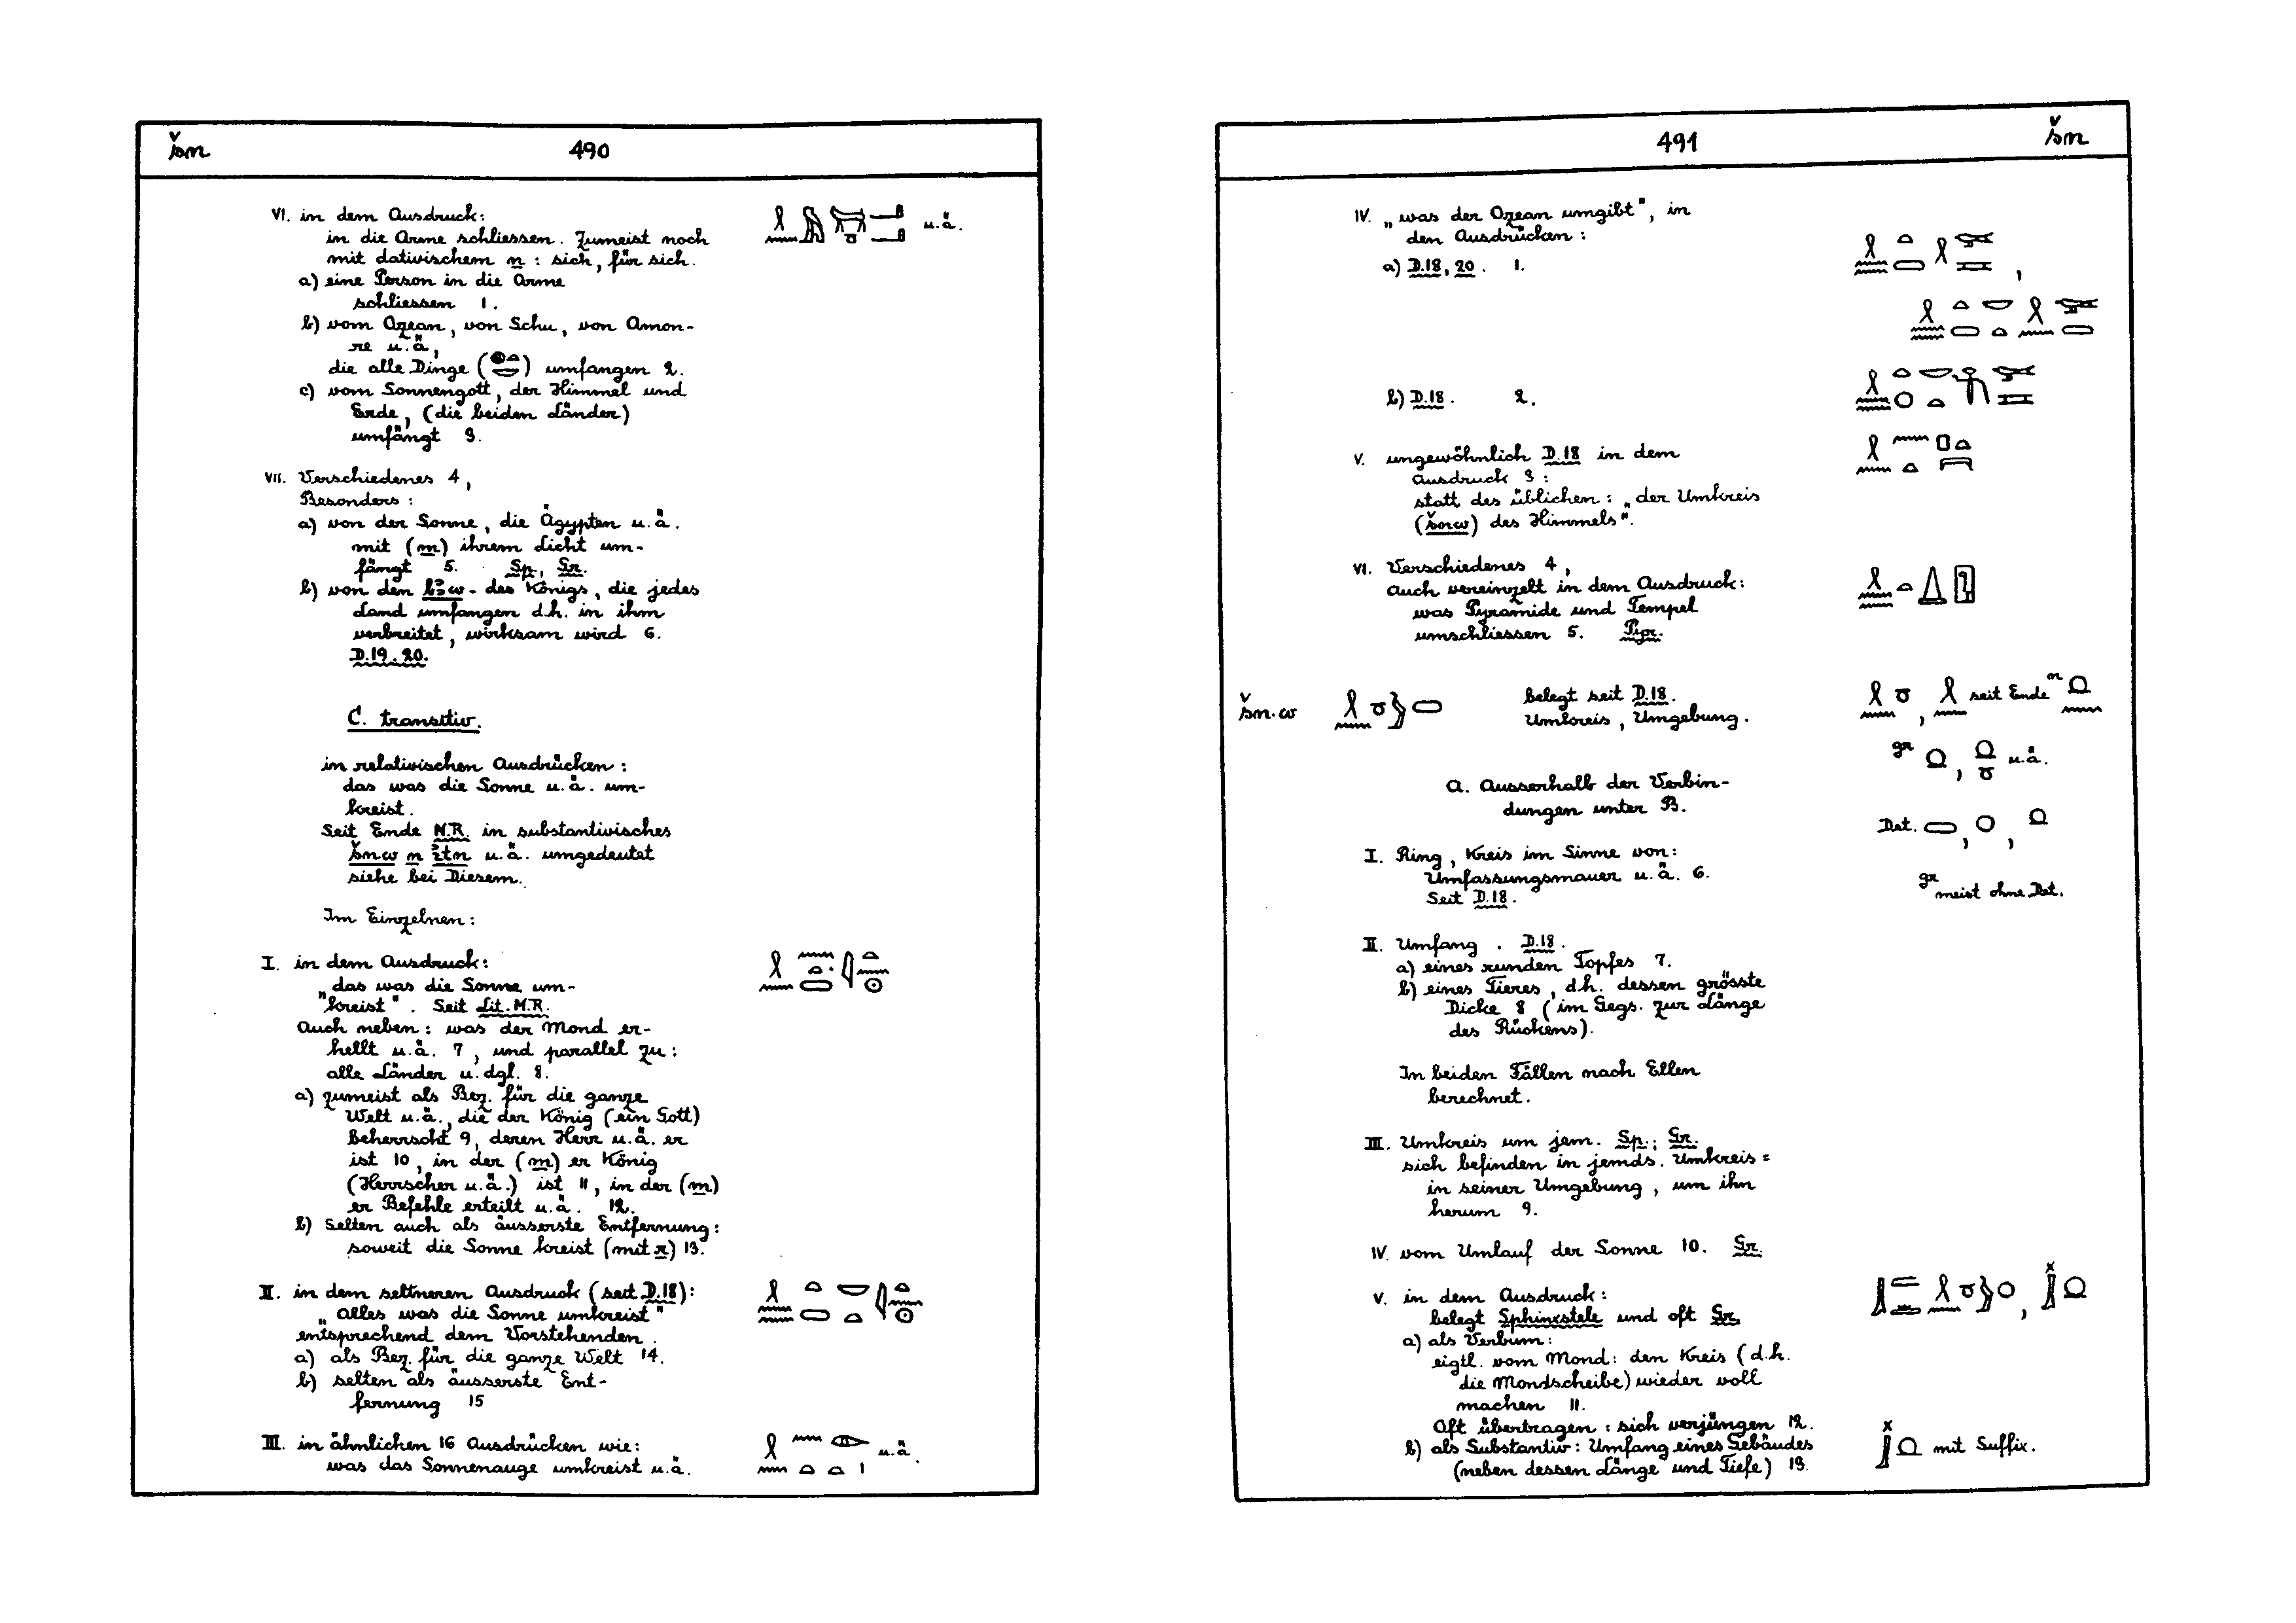 šn 490
VI. in dem Ausdruck: u.ä.
in die Arme schliessen. Zumeist noch
mit dativischem n : sich, für sich.
a) eine Person in die Arme
schliessen 1.
b) vom Ozean, von Schu, von Amon-
re u.ä,
die alle Dinge ( ) umfangen 2.
c) vom Sonnengott, der Himmel und
Erde, (die beiden Länder)
umfängt 3.
VII. Verschiedenes 4,
Besonders:
a) von der Sonne, die Ägypten u.ä.
mit (m) ihrem Licht um-
fängt 5. Sp, Gr.
b) von den bꜣw - des Königs, die jedes
Land umfangen d.h. in ihm
verbreitet, wirksam wird 6.
D.19. 20.
C. transitiv.
in relativischen Ausdrücken:
das was die Sonne u.ä. um-
kreist.
Seit Ende N.R. in substantivisches
šnw n ỉtn u.ä. umgedeutet
siehe bei Diesem.
Im Einzelnen:
I. in dem Ausdruck:
„das was die Sonne um-
kreist". Seit Lit. M.R.
Auch neben: was der Mond er-
hellt u.ä. 7, und parallel zu:
alle Länder u. dgl. 8.
a) zumeist als Bez. für die ganze
Welt u.ä., die der König (ein Gott)
beherrscht 9, deren Herr u.ä. er
ist 10, in der (m) er König
(Herrscher u.ä.) ist 11, in der (m)
er Befehle erteilt u.ä. 12.
b) Selten auch als äusserste Entfernung:
soweit die Sonne kreist (mit r) 13.
II. in dem seltneren Ausdruck (seit D.18):
„alles was die Sonne umkreist"
entsprechend dem Vorstehenden.
a) als Bez. für die ganze Welt 14.
b) selten als äusserste Ent-
fernung 15
III. in ähnlichen 16 Ausdrücken wie: u.ä.
was das Sonnenauge umkreist u.ä.
491 šn
IV. „was der Ozean umgibt", in
den Ausdrücken:
a) D.18, 20. 1. ,
b) D.18. 2.
V. ungewöhnlich D.18 in dem
Ausdruck 3:
statt des üblichen: „der Umkreis
(šnw) des Himmels".
VI. Verschiedenes 4,
auch vereinzelt in dem Ausdruck:
was Pyramide und Tempel
umschliessen 5. Pyr.
šn.w belegt seit D.18. , seit Ende n
Umkreis, Umgebung.
gr , u.ä.
A. Ausserhalb der Verbin-
dungen unter B.
Det. , ,
I. Ring, Kreis im Sinne von:
Umfassungsmauer u.ä. 6.
Seit D.18. gr meist ohne Det.
II. Umfang. D.18.
a) eines runden Topfes 7.
b) eines Tieres, d.h. dessen grösste
Dicke 8 (im Gegs. zur Länge
des Rückens).
In beiden Fällen nach Ellen
berechnet.
III. Umkreis um jem. Sp.; Gr.
sich befinden in jemds. Umkreis =
in seiner Umgebung, um ihn
herum 9.
IV. vom Umlauf der Sonne 10. Gr.
V. in dem Ausdruck: , x
belegt Sphinxstele und oft Gr.
a) als Verbum:
eigtl. vom Mond: den Kreis (d.h.
die Mondscheibe) wieder voll
machen 11.
Oft übertragen: sich verjüngen 12.
b) als Substantiv: Umfang eines Gebäudes x mit Suffix.
(neben dessen Länge und Tiefe) 13.